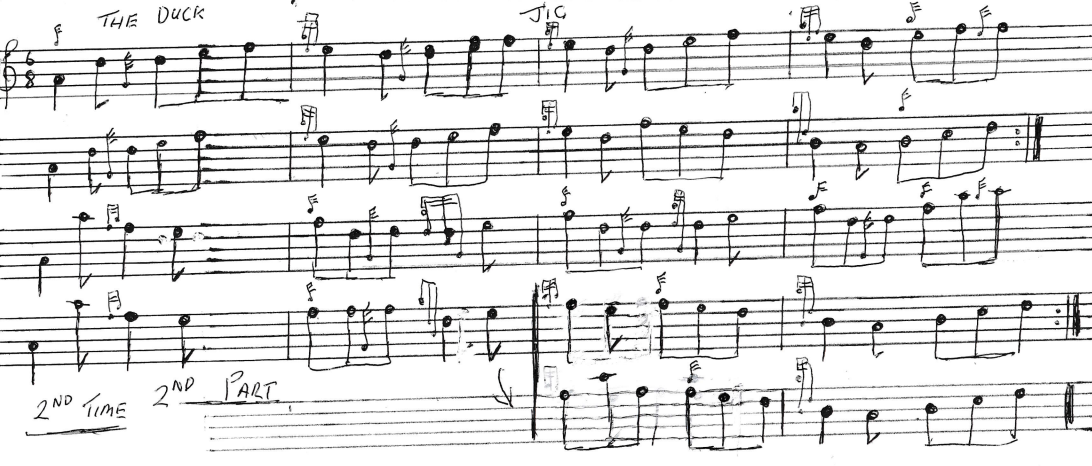 THE DUCK JIG
6
8
2ND TIME 2ND PART